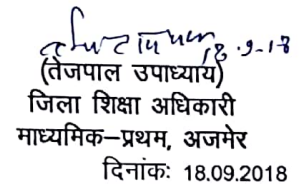 18.9.18
(तेजपाल उपाध्याय)
जिला शिक्षा अधिकारी
माध्यमिक–प्रथम, अजमेर
दिनांकः 18.09.2018